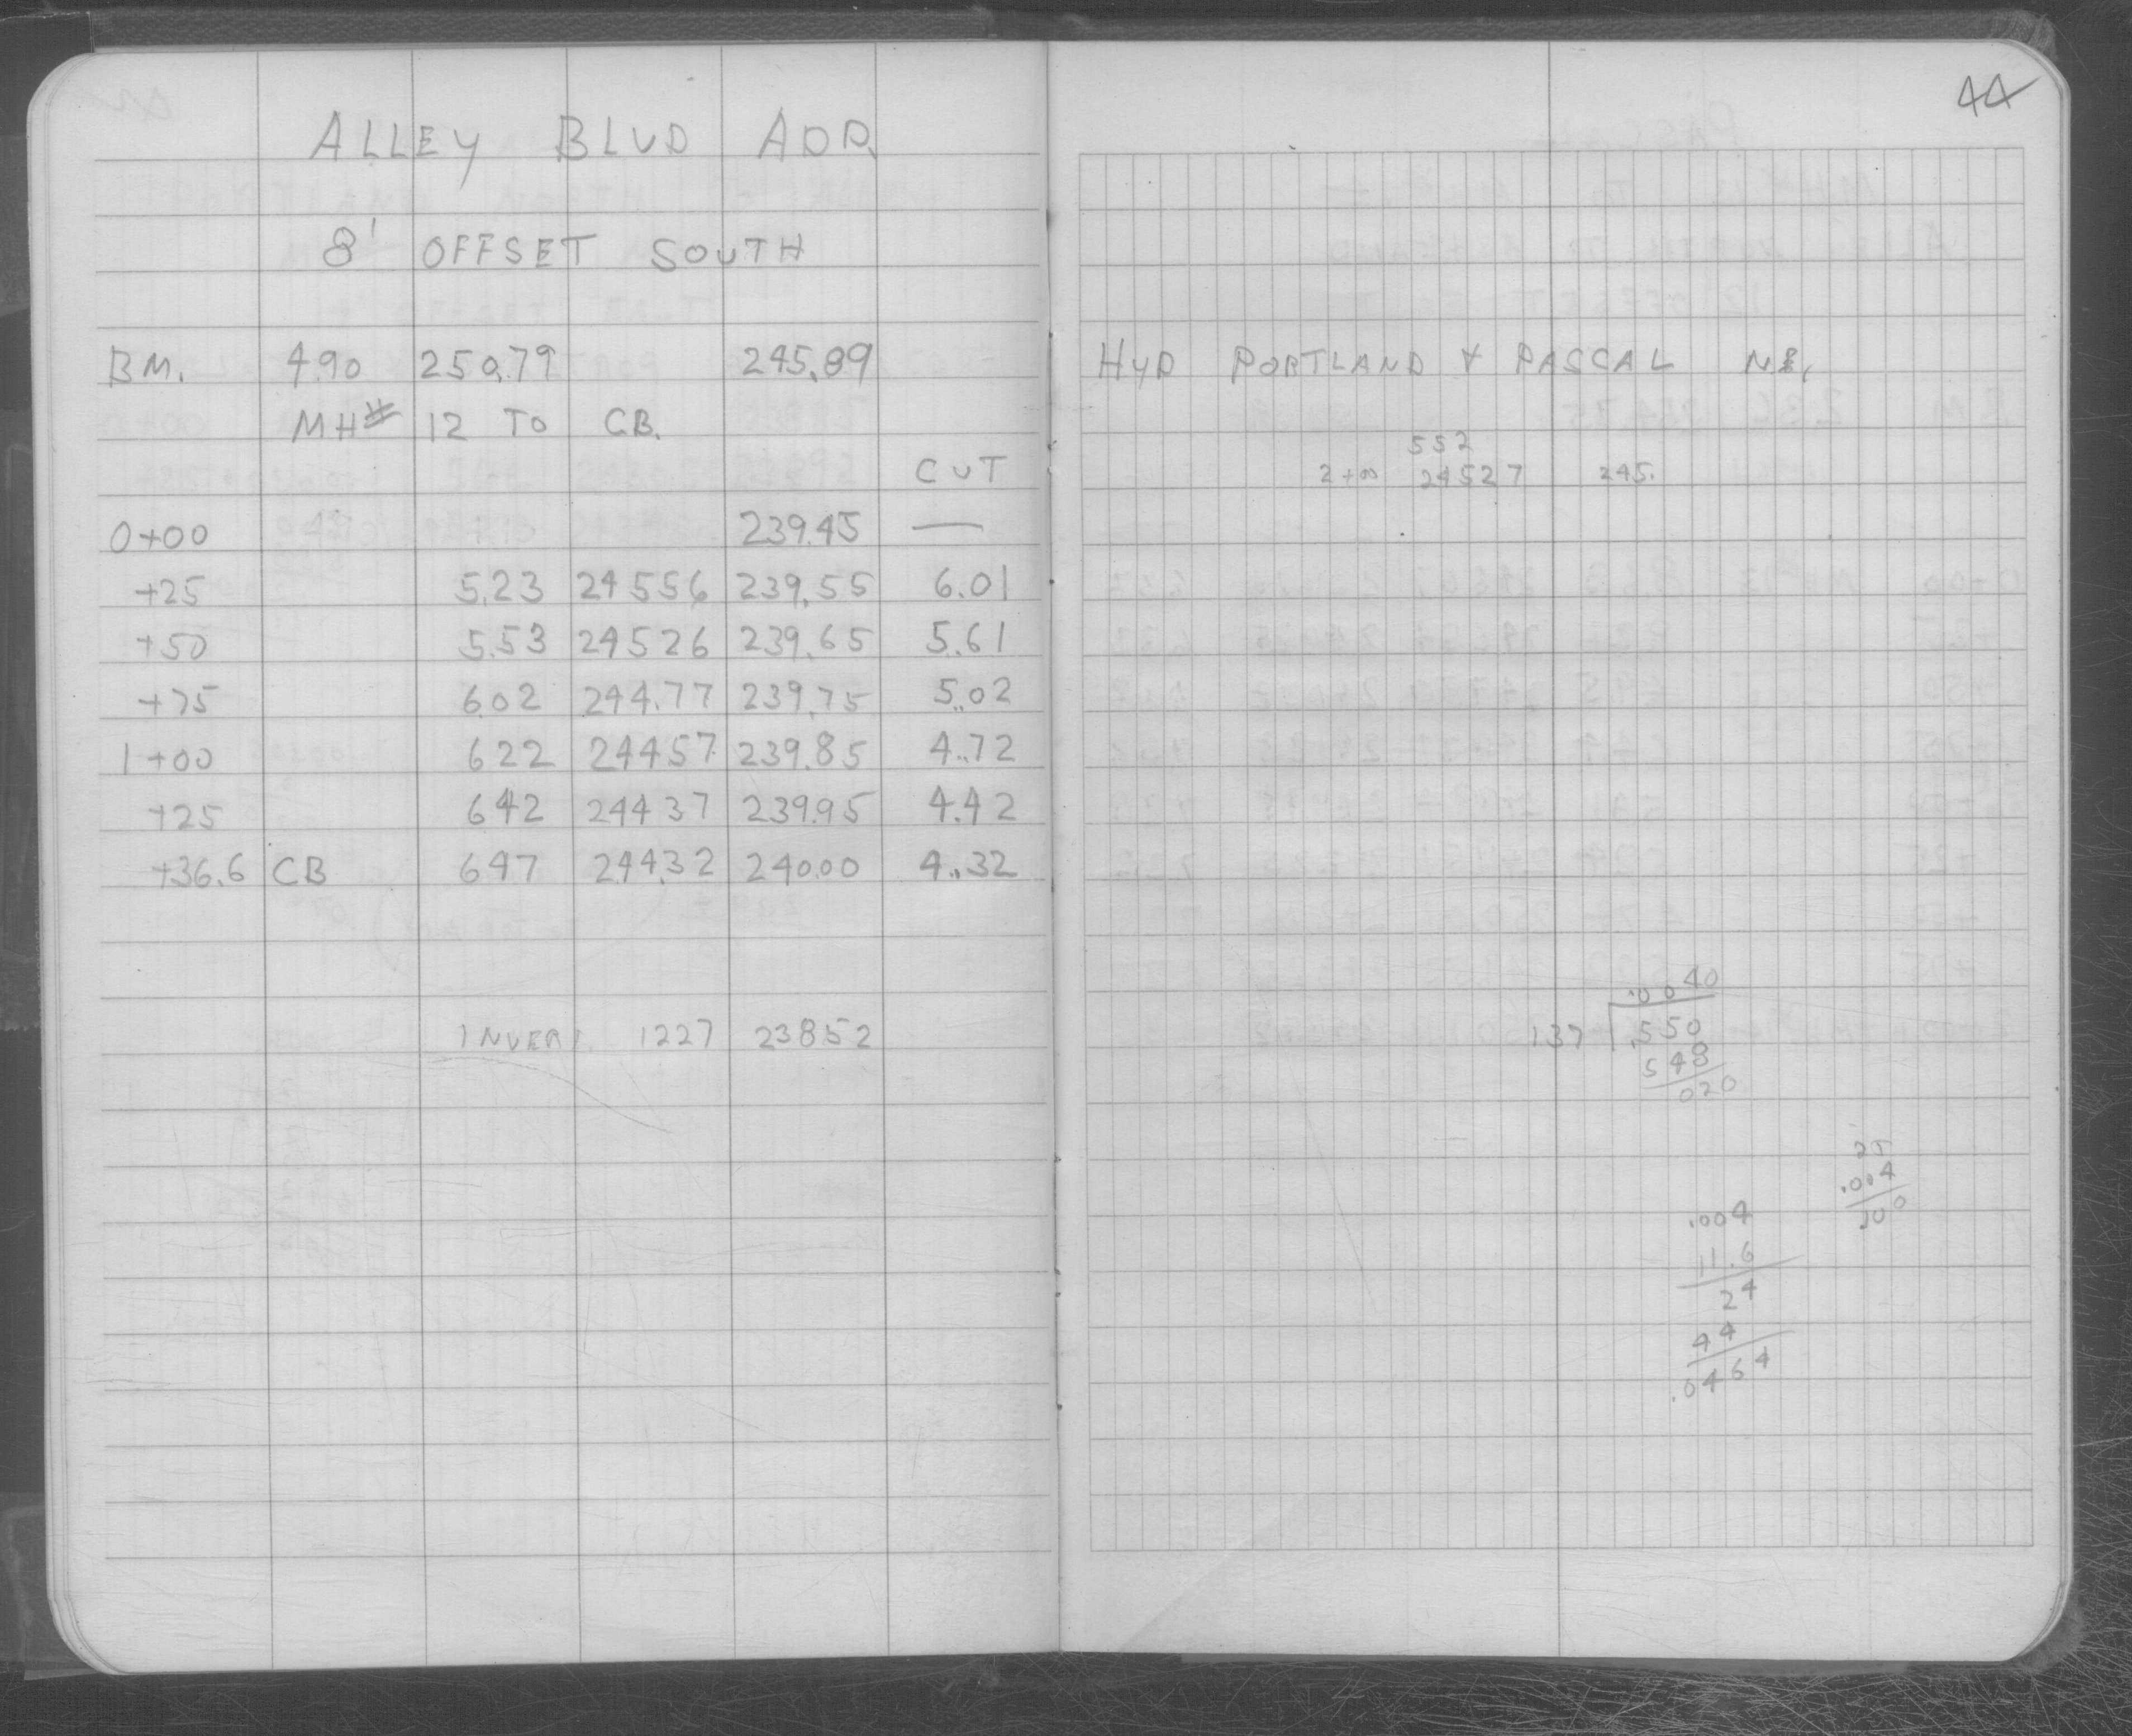 ALLEY BLVD ADD.
8' OFFSET SOUTH
BM. 4.90 250.79 245.89
MH# 12 TO CB.
CUT
0+00 239.45 —
+25 5.23 24556 239.55 6.01
+50 5.53 24526 239.65 5.61
+75 602 244.77 239.75 5.02
1+00 622 24457 239.85 4.72
+25 642 24437 239.95 4.42
+36.6 CB 647 244.32 240.00 4.32
INVERT 1227 23852
44
HYD PORTLAND & PASCAL NE.
552
2+00 24527 245.
.0040
137 .550
548
020
25
.004
100
.004
11.6
24
44
.0464